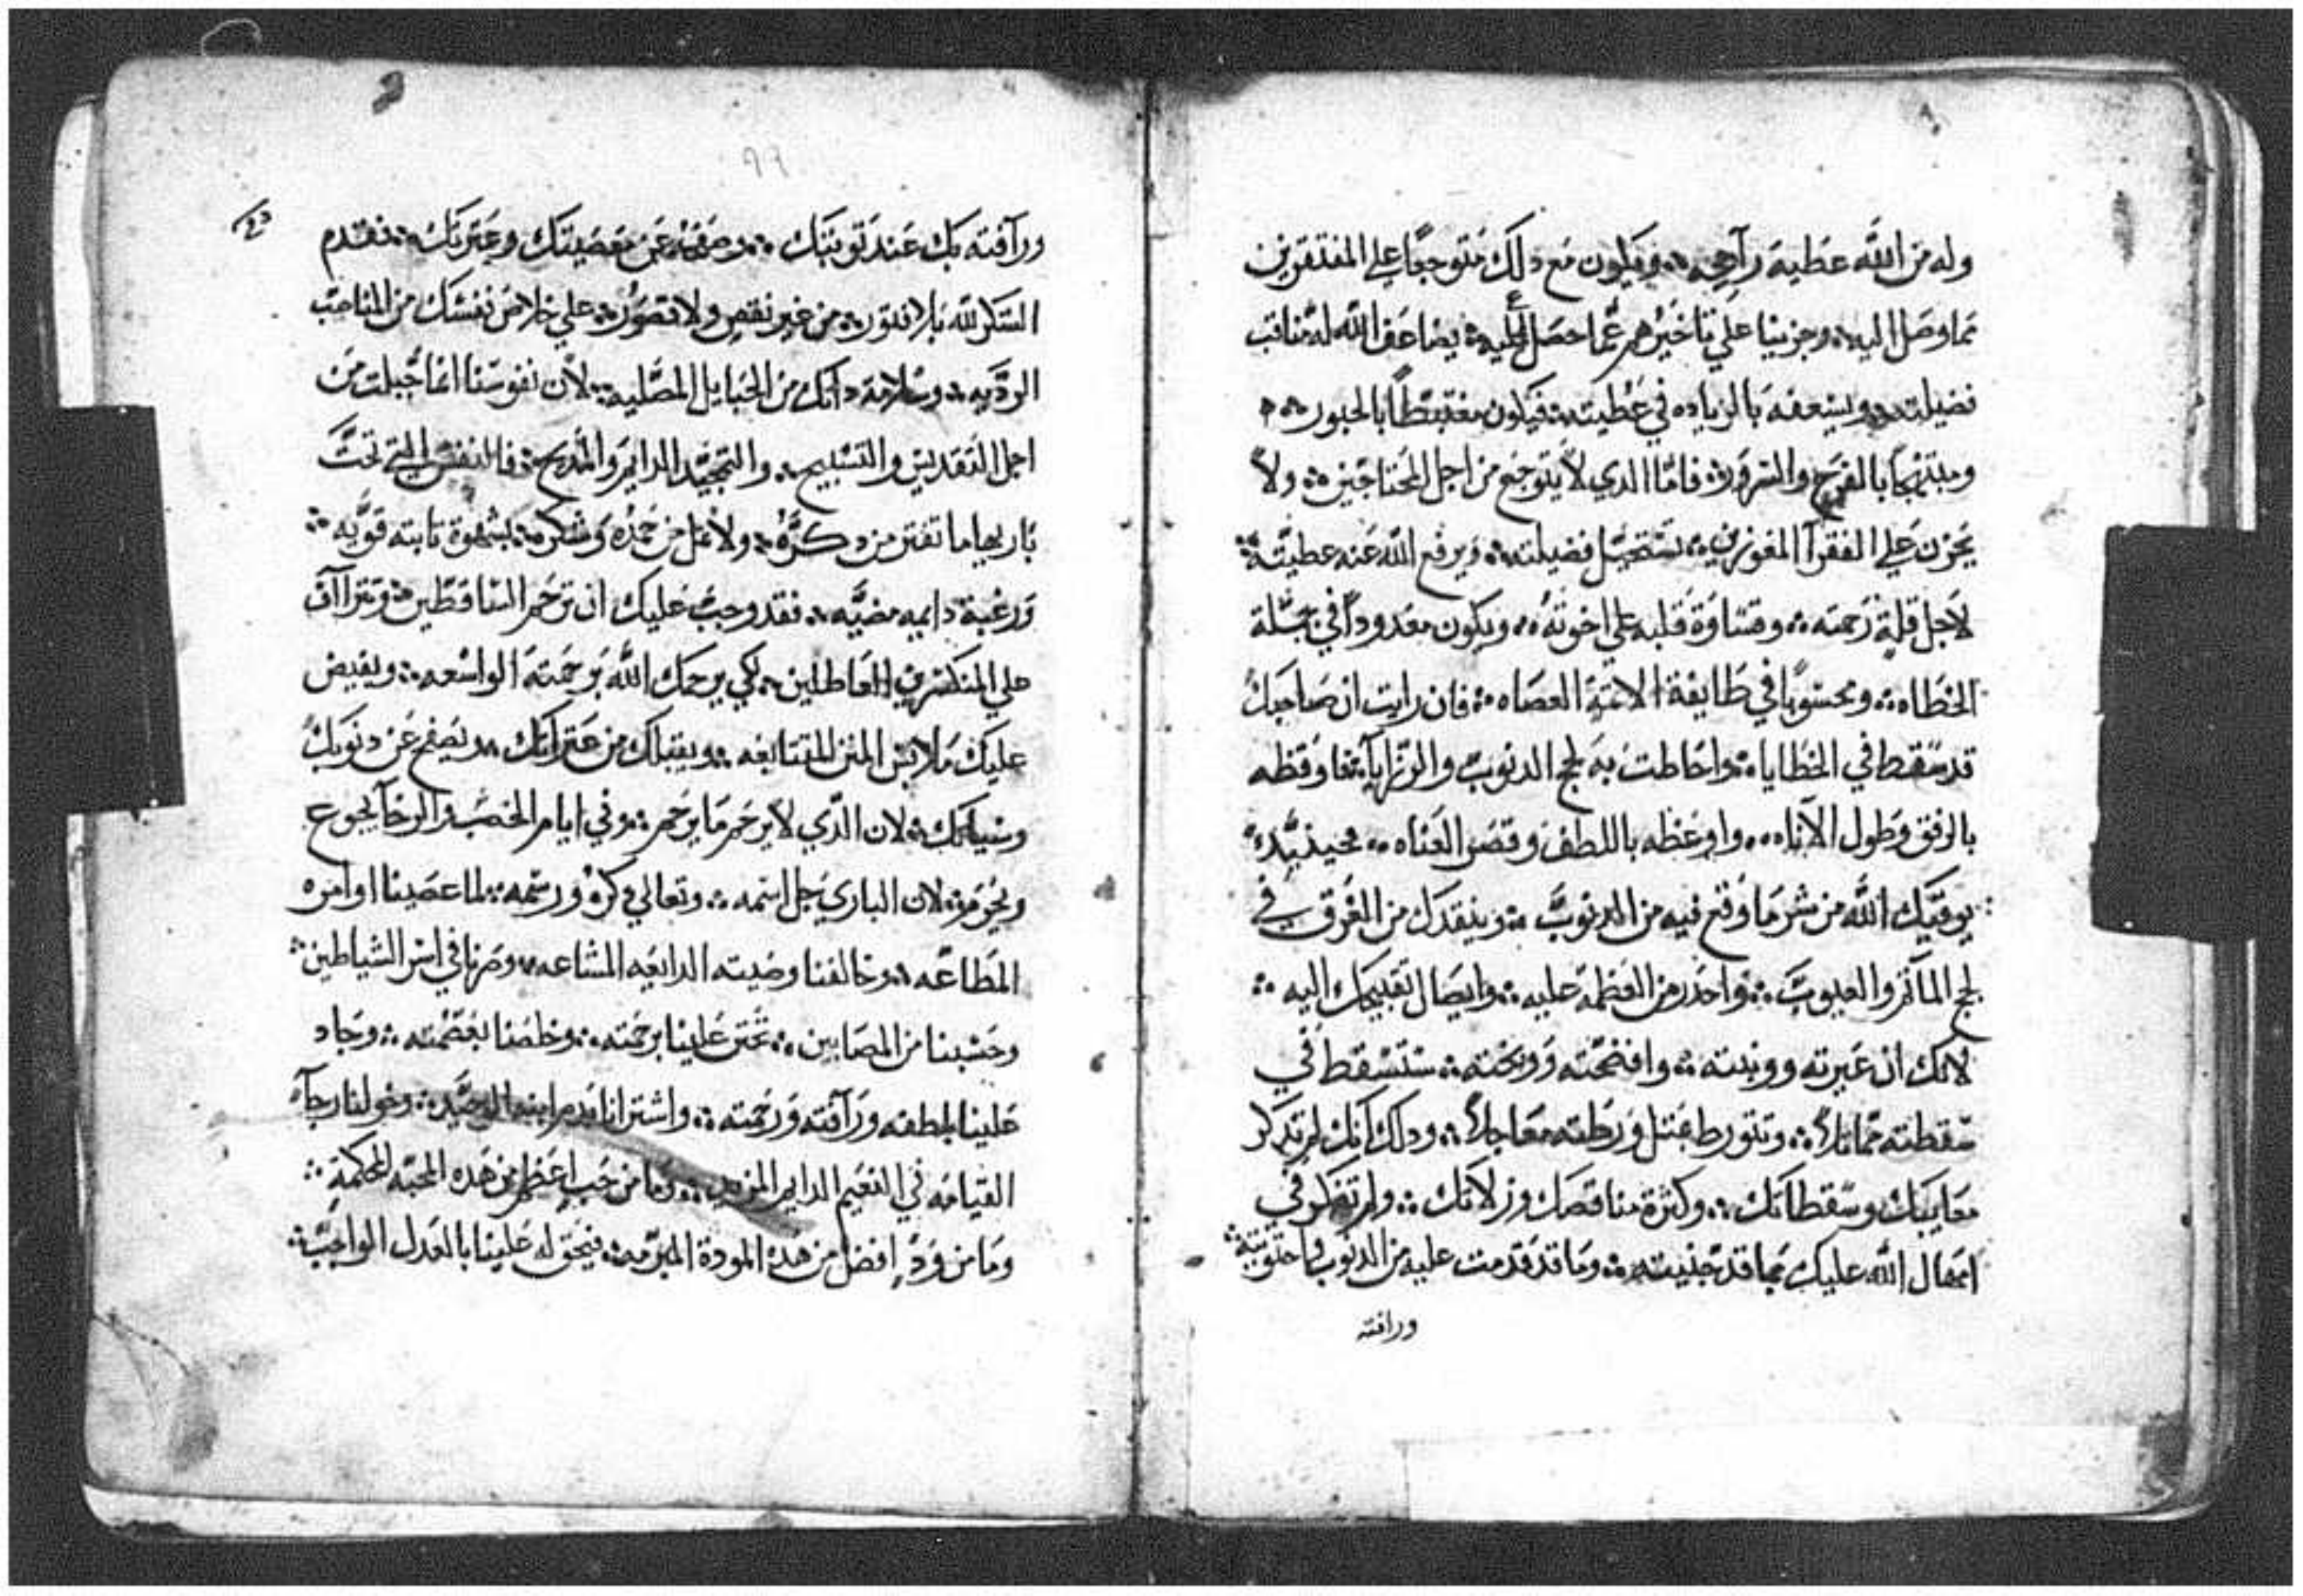 وله من الله عطيه رآهجه ؞ ويكون مع دلك متوجعا علي المفتقرين
مما وصل اليه ؞ وحزينا علي تاخيرهم عما حصل عليه ؞ يضاعف الله له مناقب
فضيلته ؞ ويسعفه بالزياده في عطيته ؞ فيكون مغتبطا بالحبور ؞
ومبتهجا بالفرح والسرور ؞ فاما الدي لا يتوجع من اجل المحتاجين ؞ ولا
يحزن علي الفقرآ المعوزين ؞ تستحيل فضيلته ؞ ويرفع الله عنه عطيته ؞
لاجل قلة رحمته ؞ وقساوة قلبه علي اخوته ؞ ويكون معدودا في جملة
الخطاه ؞ ومحسوبا في طايفة الاتمة العصاه ؞ فان رايت ان صاحبك
قد سقط في الخطايا ؞ واحاطت به لجج الدنوب والرزايا ؞
بالرفق وطول الاناه ؞ واوعظه باللطف وقصر العناه ؞ فحينيد
يوقيك الله من شر ما وقع فيه من الدنوب ؞ وينقدك من الغرق في
لجج المآتم والعيوب ؞ واحدر من العظمه عليه ؞ وايصال تقبيحك اليه ؞
لانك ان عيرته ووبنته ؞ وافضحته ووبخته ؞ ستسقط في
سقطته مماتلا ؞ وتتورط بمتل ورطته معاجلا ؞ ودلك انك لم تدكر
معايبك وسقطاتك ؞ وكثرة مناقصك وزلاتك ؞ ولم تفكر في
امهال الله عليك بما قد جنيته ؞ وما قد قدمت عليه من الدنوب واحتويته ؞
ورافته
ورآفته بك عند توبتك ؞ وصفحه عن معصيتك وعترتك ؞ فقدم
الشكر لله بلا فتور ؞ من غير نقص ولا قصور ؞ علي خلاص نفسك من المناصب
الرديه ؞ وسلامة داتك من الحبايل المصليه ؞ لان نفوسنا انما جبلت من
اجل التقديس والتسبيح ؞ والتمجيد الدايم والمديح ؞ فالنفس التي تحت
باريها ما تفتر من دكره ؞ ولا تمل من حمده وشكره ؞ بشهوة تابته قويه ؞
ورغبة دايمه مضيه ؞ فقد وجب عليك ان ترحم الساقطين ؞ وتتراآف
علي المنكسرين العاطلين ؞ لكي يرحمك الله برحمته الواسعه ؞ ويفيض
عليك ملابس المنن المتتابعه ؞ ويقيلك من عتراتك ؞ ويصفح عن دنوبك
وسيااتك ؞ لان الدي لا يرحم ما يرحم ؞ وفي ايام الخصب والرخآ يجوع
ويحرم ؞ لان الباري جل اسمه ؞ وتعالي دكره ورسمه ؞ لما عصينا اوامره
المطاعه ؞ وخالفنا وصيته الدايعه المشاعه ؞ وصرنا في اسر الشياطين ؞
وحسبنا من المصابين ؞ تحنن علينا برحمته ؞ وخلصنا بعصمته ؞ وجاد
علينا بلطفه ورآفته ورحمته ؞ واشترانا بدم ابنه الوحيد ؞ وخولنا رجآء
القيامه في النعيم الدايم المزيد ؞ وما من حب اعظم من هده المحبه المحكمة ؞
وما من ود افضل من هده المودة المبرمه ؞ فيحق له علينا بالعدل الواجب ؞